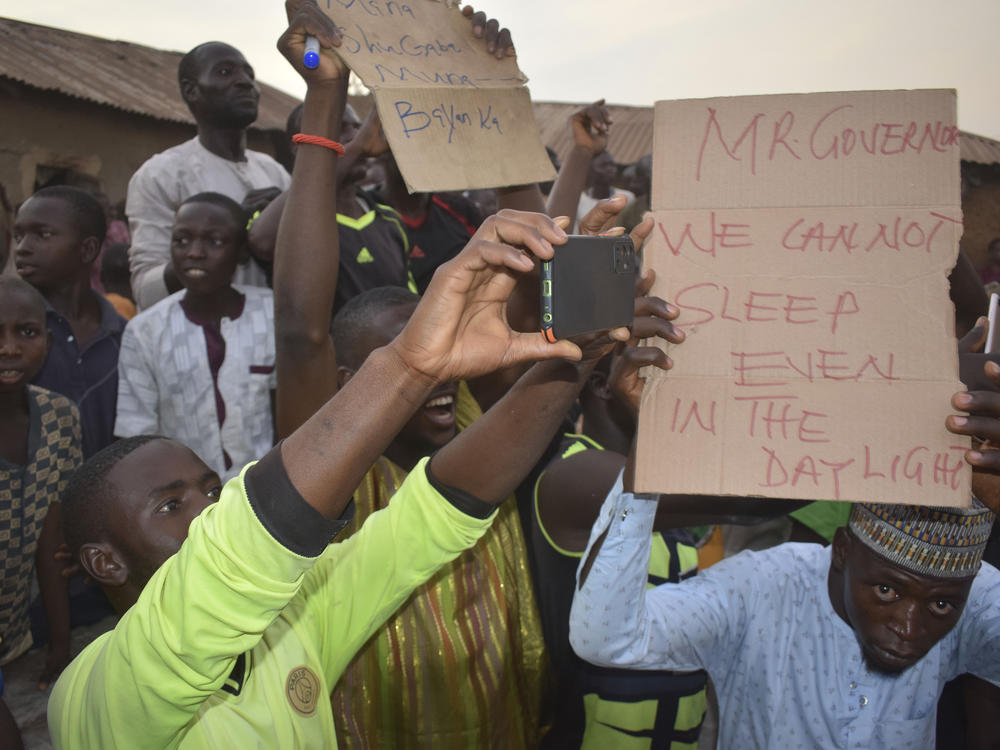 Mina
Shu Gaba
Muna
Bayan Ka
MR. GOVERNOR
WE CANNOT
SLEEP
EVEN
IN THE
DAYLIGHT
PARIS